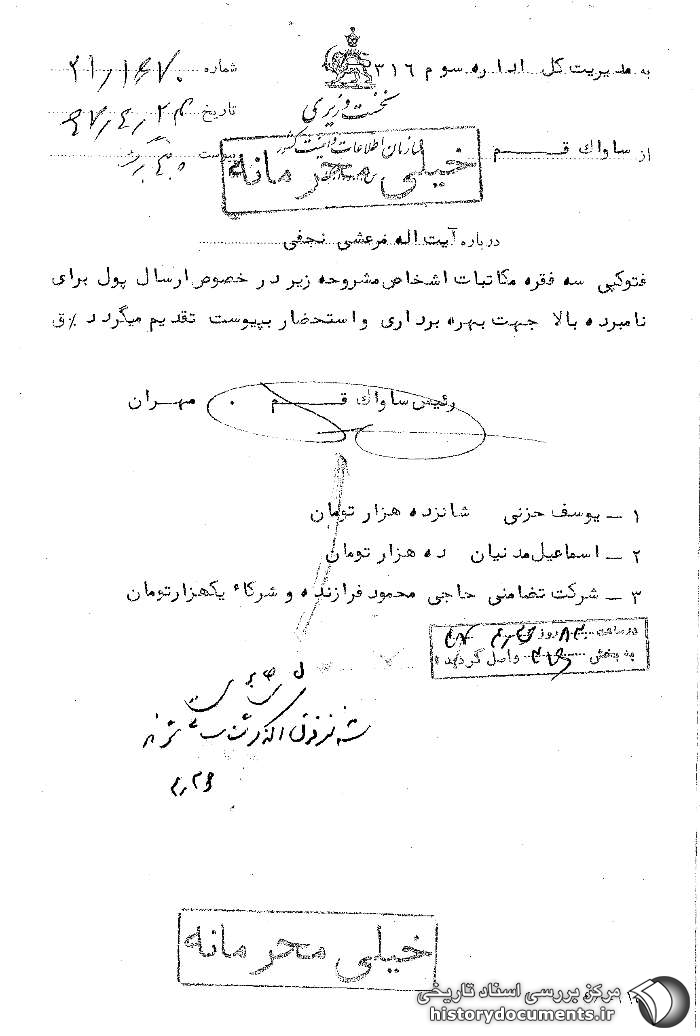 به مدیریت کل اداره سوم ۳۱۶
شماره ۲۱/۱۶۷۰
نخست وزیری
تاریخ
سازمان اطلاعات و امنیت کشور
از ساواک قم
پیوست
خیلی محرمانه
درباره آیت اله مرعشی نجفی
فتوکپی سه فقره مکاتبات اشخاص مشروحه زیر در خصوص ارسال پول برای
نامبرده بالا جهت بهره برداری و استحضار بپیوست تقدیم میگردد %ق
رئیس ساواک قم . مهران
۱ ـ یوسف حزنی شانزده هزار تومان
۲ ـ اسماعیل مدنیان ده هزار تومان
۳ ـ شرکت تضامنی حاجی محمود فرازنده و شرکاء یکهزارتومان
در ساعت روز
به بخش واصل گردید
خیلی محرمانه
مرکز بررسی اسناد تاریخی
historydocuments.ir